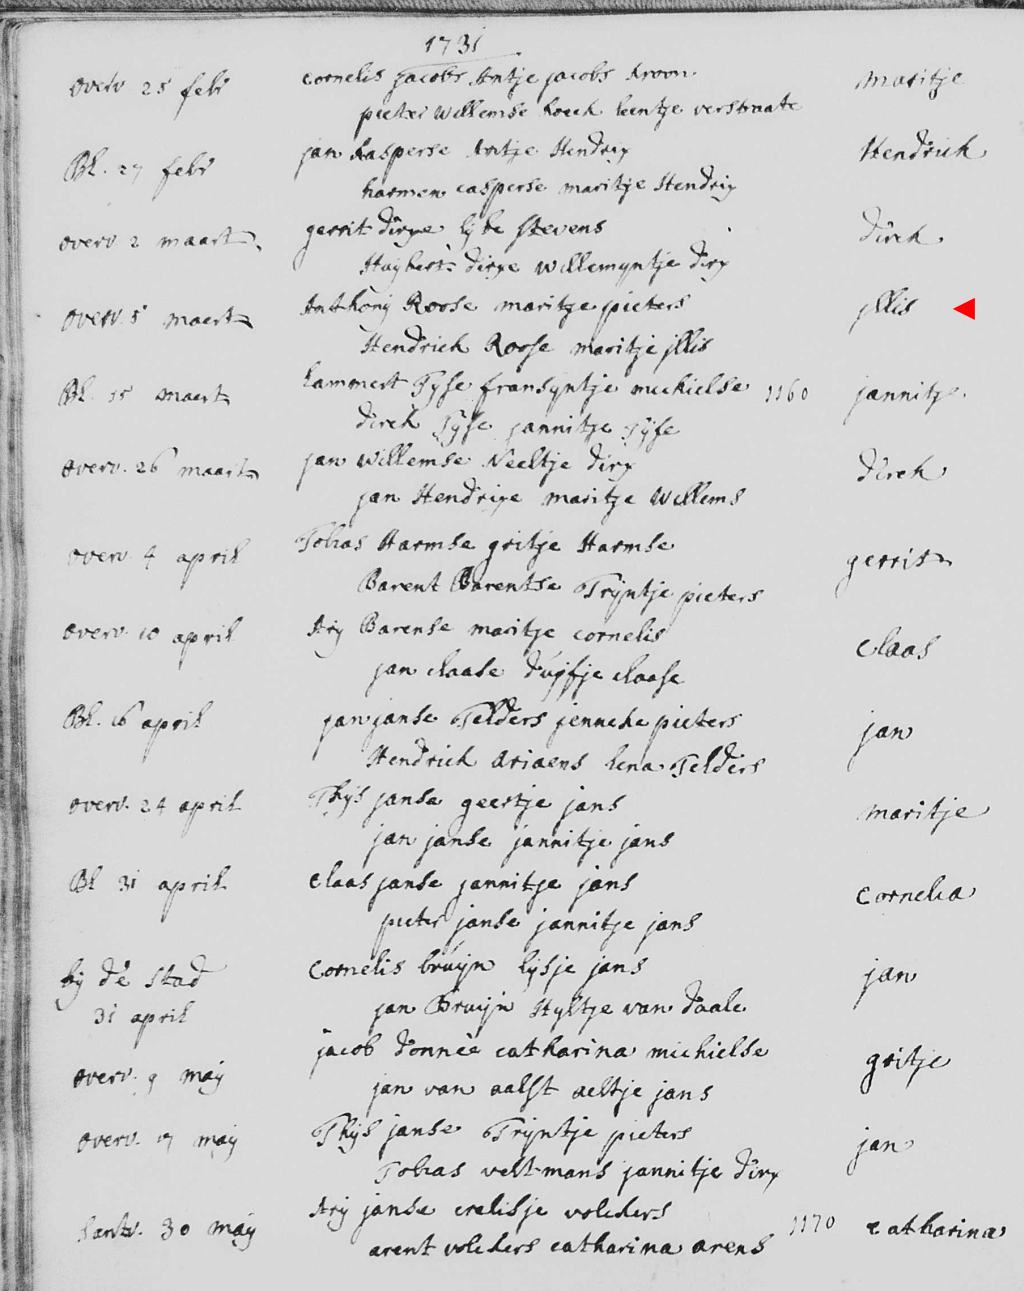 1731
overv 25 febr cornelis jacobs Antje jacobs kroon maritje
pieter willemse koeck leentje verstraate
Bl. 27 febr jan kasperse Antje Hendrix Hendrick
harmen casperse maritje Hendrix
overv. 2 maart gerrit dirxe lijbe stevens direk
Huijbert dirxe willemyntje dirx
overv. 5 maert Anthonij Roose maritje pieters jllis
Hendrick Roose maritje jllis
Bl. 15 maert Lammert Tyse fransyntje michielse 1160 jannitje
direk Tyse jannitje Tyse
overv. 26 maart jan willemse Neeltje dirx direk
jan Hendrixe maritje willems
overv. 4 april Tobias Harmse gritje Harmse gerrit
Barent Barentse Trijntje pieters
overv. 10 april Arij Barense maritje cornelis claas
jan claase duijfje claase
Bl. 16 april jan janse Telders jenneke pieters jan
Hendrick ariaens lena Telders
overv. 24 april Thijs janse geertje jans maritje
jan janse jannitje jans
Bl 31 april claas janse jannitje jans cornelia
pieter janse jannitje jans
bij de stad cornelis bruijn lijsje jans jan
31 april jan Bruijn Hyltje van daale
jacob donnee catharina michielse gritje
overv. 9 maij jan van aalst aeltje jans
overv. 17 maij Thijs janse Trijntje pieters jan
Tobias veltmans jannitje dirx
santv. 30 maij Arij janse crelisje volckers 1170 catharina
arent volckers catharina arens